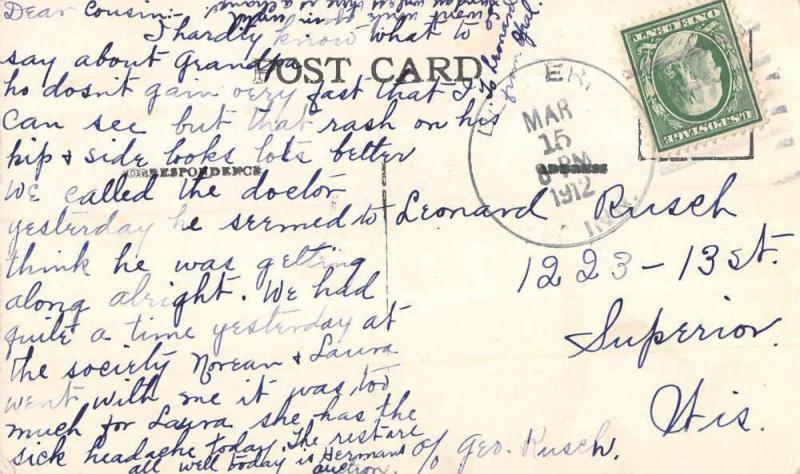 Dear Cousin:-
I hardly know what to
say about Grandpa
POST CARD
he dosn't gain very fast that I
can see but that rash on his
hip & side looks lots better
CORRESPONDENCE
We called the doctor
yesterday he seemed to
think he was getting
along alright. We had
quite a time yesterday at
the society Norean & Laura
went with me it was too
much for Laura she has the
sick headache today. The rest are
all well today is Hermans
auction.
write again until
unless there is a change
To Leonard
from
ER,
MAR
15
PM
1912
U.S. POSTAGE
ONE CENT
ADDRESS
Leonard Rusch
1223-13 St.
Superior.
Wis.
c/o Geo. Rusch.